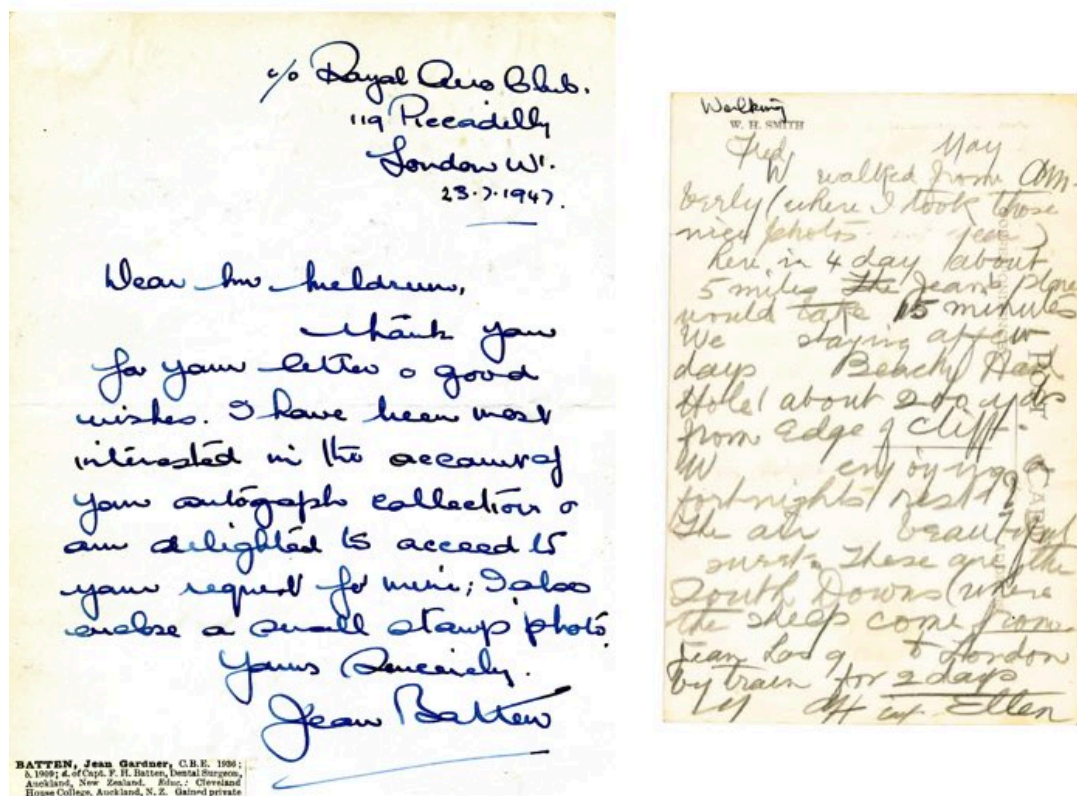 c/o Royal Aero Club.
119 Piccadilly
London W1.
23.7.1947.
Dear Mr Meldrum,
Thank you
for your letter & good
wishes. I have been most
interested in the account of
your autograph collection &
am delighted to acceed to
your request for mine; I also
enclose a small stamp photo.
Yours Sincerely.
Jean Batten
BATTEN, Jean Gardner, C.B.E. 1936;
b. 1909; d. of Capt. F. H. Batten, Dental Surgeon,
Auckland, New Zealand. Educ.: Cleveland
House College, Auckland, N. Z. Gained private
Walking
W. H. SMITH
Fred May
W walked from Am-
berly (where I took those
nice photos year)
here in 4 day about
5 miles The Jean's plane
would take 15 minutes
We staying a few
days Beachy Head
Hotel about 200 yds
from edge of Cliff.
W enjoying a
fortnights rest
The air beautiful
sweet. These are the
South Downs (where
the sheep come from
Jean has to London
by train for 2 days
Ellen
POST CARD